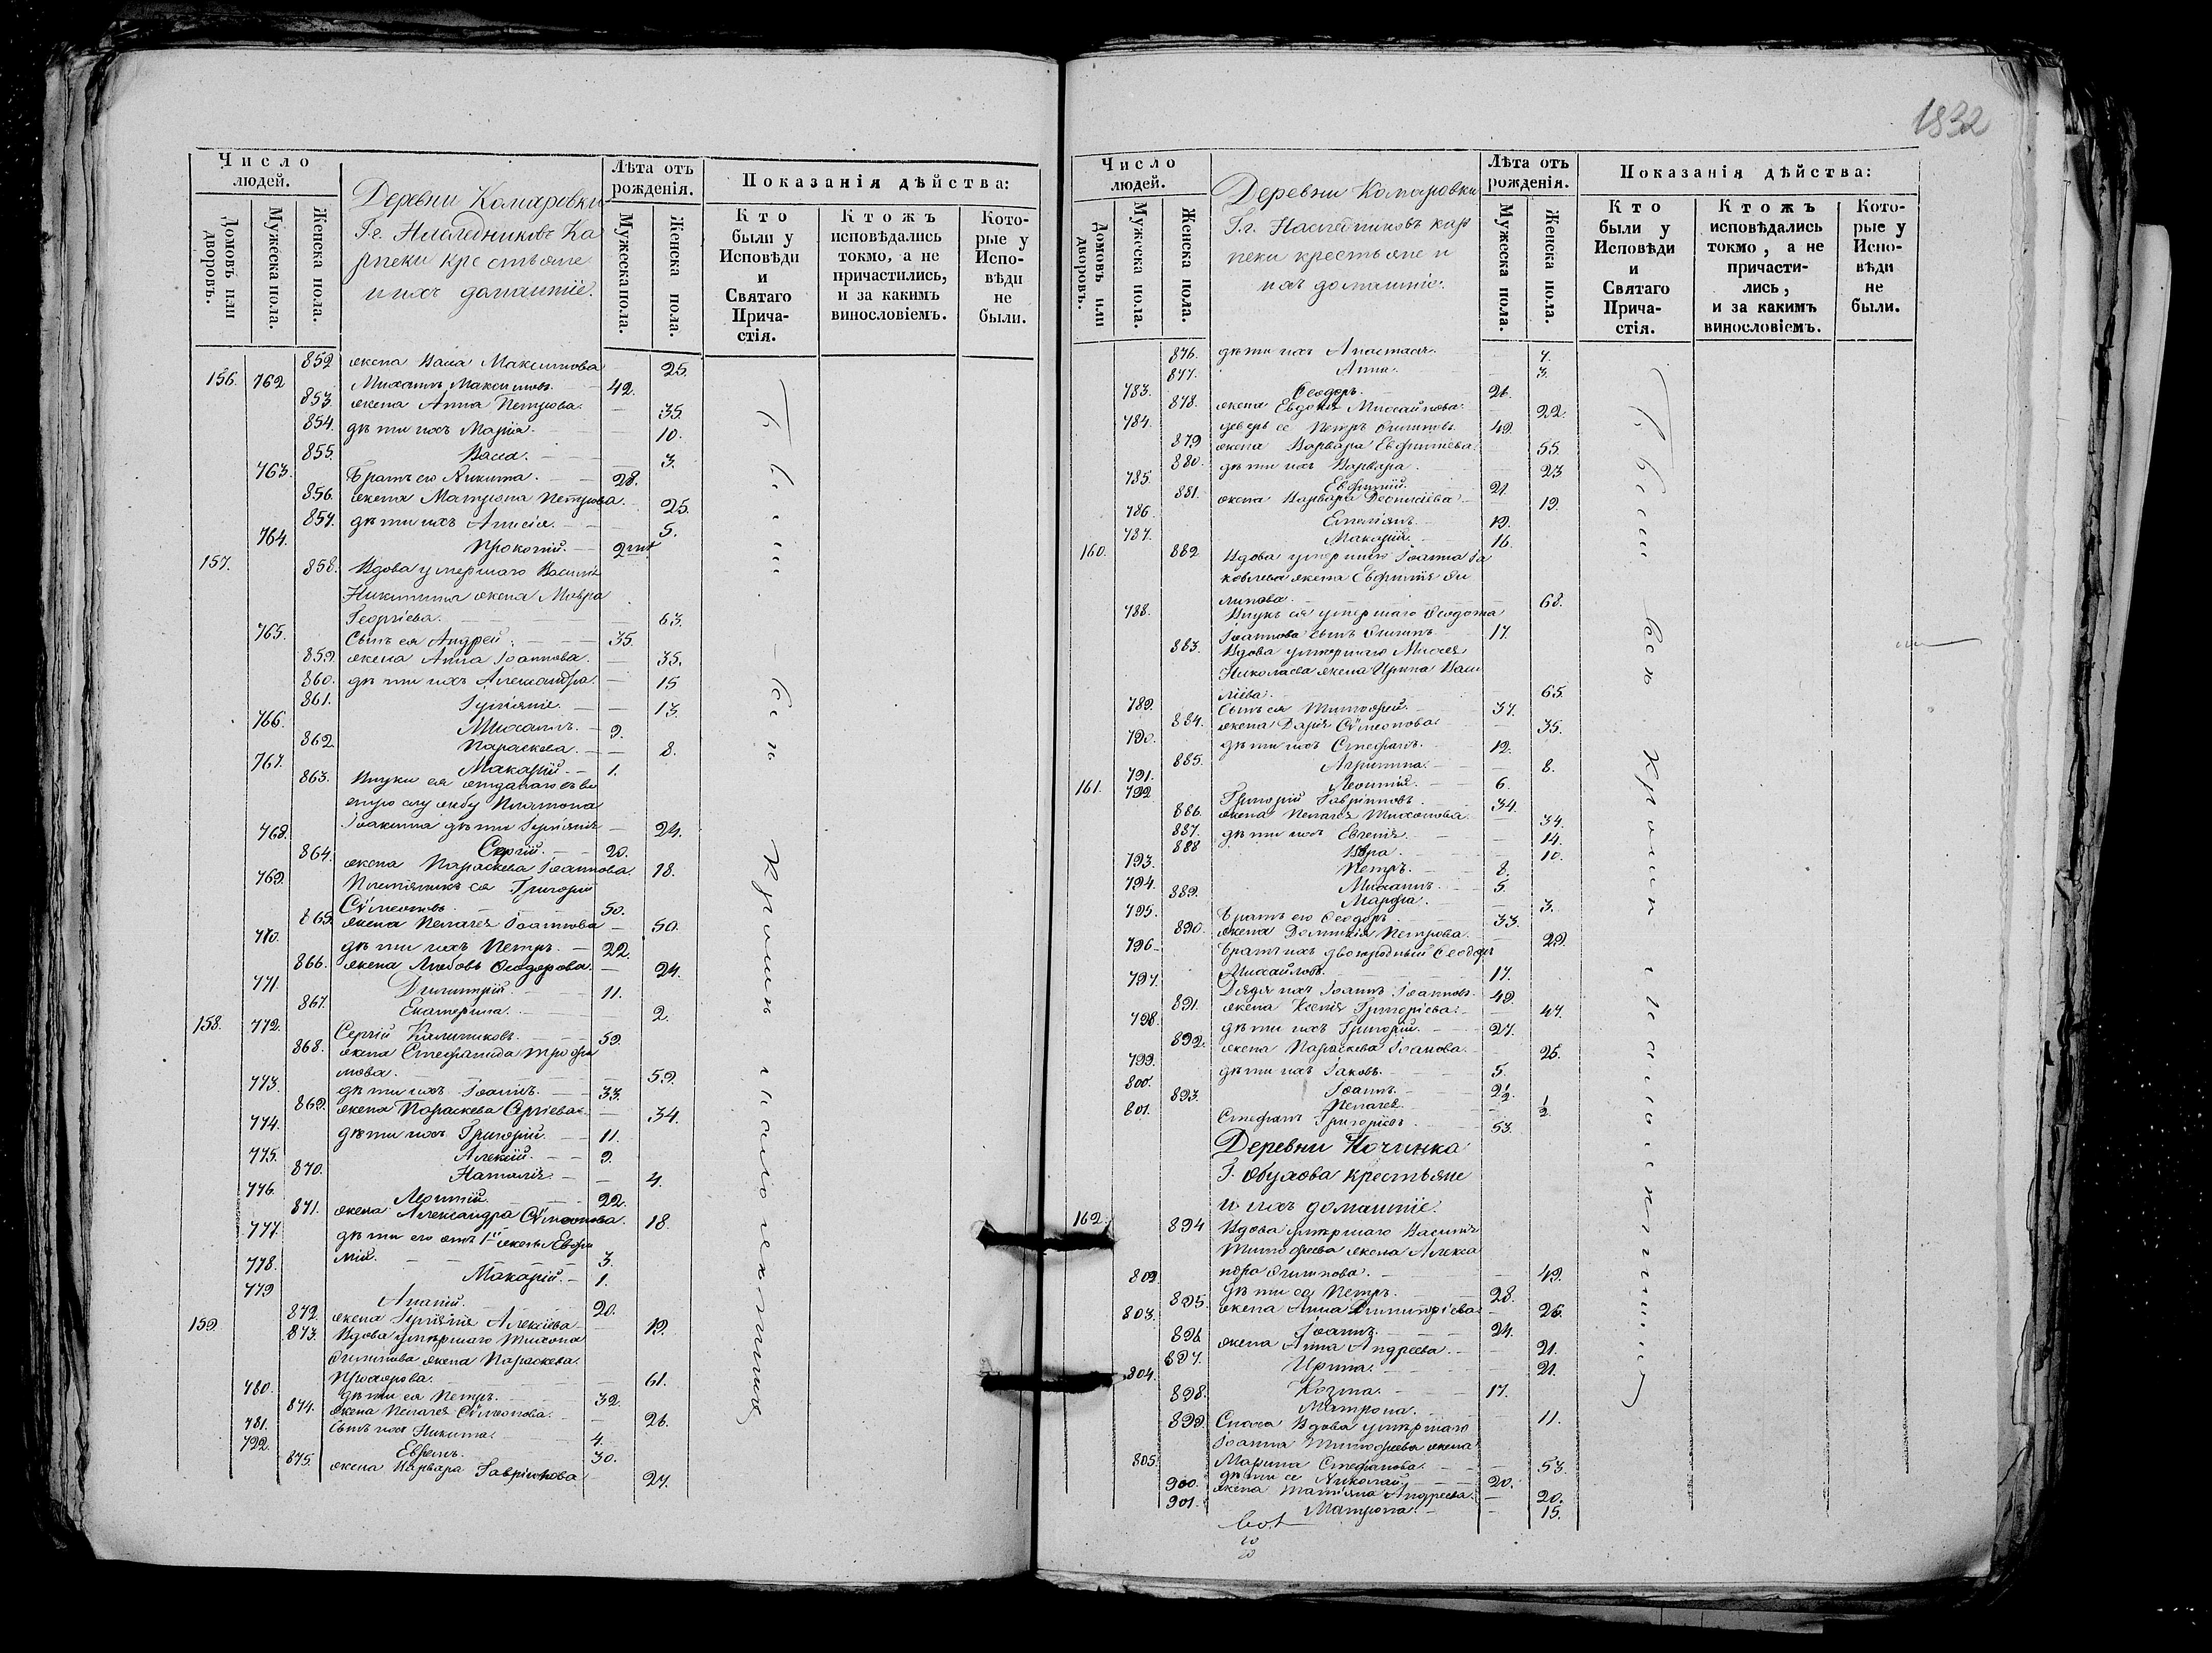 Число людей.
Домовъ или дворовъ.
Мужеска пола.
Женска пола.
Деревни Комаровки
Г.г. Наследниковъ Ка
рпеки крестьяне
и ихъ домашніе.
Лѣта отъ рожденія.
Мужеска пола.
Женска пола.
Показанія дѣйства:
Кто были у Исповѣди и Святаго Причастія.
Ктожъ исповѣдались токмо, а не причастились, и за какимъ винословіемъ.
Которые у Исповѣди не были.
852 жена Васа Максимова 25.
156. 762 Михаилъ Максимовъ. 42.
853. жена Анна Петрова. 35.
854. дѣти ихъ Марія. 10.
855. Васса. 3.
763. Братъ его Никита. 28.
856. жена Матрона Петрова. 25.
857. дѣти ихъ Анисія. 5.
764. Прокопій. 2
157. 858. Вдова умершаго Василія
Никитина жена Мавра
Георгіева. 63.
765. Сынъ ея Андрей. 35.
859. жена Анна Іоаннова. 35.
860. дѣти ихъ Александра. 15
861. Іуліанія. 13.
766. Михаилъ. 9.
862. Параскева. 8.
767. Макарій. 1.
863. Внуки ея отданаго въ во
енную службу Платона
Іоакима дѣти Іуліанія 24.
768. Сергій. 20.
864. жена Параскева Іоаннова. 18.
769. Племянникъ ея Григорій
Сѵмеоновъ 50.
865. жена Пелагея Іоаннова 50.
770. дѣти ихъ Петръ. 22.
866. жена Любовь Ѳеодорова. 24.
771. Димитрій. 11.
867. Екатерина. 2.
158. 772. Сергій Калинниковъ. 59.
868. жена Стефанида Трофи
мова. 59.
773. дѣти ихъ Іоаннъ. 33.
869. жена Параскева Сергіева. 34.
774. дѣти ихъ Григорій. 11.
775. Алексій. 9.
870. Наталія. 4.
776. Леонтій. 22.
871. жена Александра Сѵмеонова. 18.
777. дѣти его отъ 1й жены Евфи
мій. 3.
778. Макарій. 1.
779 Ананій. 20.
872. жена Іуліанія Алексіева 19.
159 873. Вдова умершаго Тихона
Филипова жена Параскева
Прохорова. 61.
780. дѣти ея Петръ. 32.
874. жена Пелагея Сѵмеонова. 26.
781. сынъ ихъ Никита. 4.
792. Ефремъ. 30.
875. жена Варвара Гавріилова 27.
Были всѣ кромѣ малолетнихъ
1832
Число людей.
Домовъ или дворовъ.
Мужеска пола.
Женска пола.
Деревни Комаровки
Г.г. Наследниковъ кар
пеки крестьяне и
ихъ домашніе.
Лѣта отъ рожденія.
Мужеска пола.
Женска пола.
Показанія дѣйства:
Кто были у Исповѣди и Святаго Причастія.
Ктожъ исповѣдались токмо, а не причастились, и за какимъ винословіемъ.
Которые у Исповѣди не были.
876. дѣти ихъ Анастасія. 7.
877. Анна. 3.
783. Ѳеодоръ. 26.
878. жена Евдокія Михайлова. 22.
784. деверь ее Петръ Филиповъ. 49.
879 жена Варвара Евфимiева. 55.
880. дѣти ихъ Варвара. 23
785. Евфимій. 21.
881. жена Варвара Деонисіева 19.
786 Емеліянъ. 19.
787. Макарій. 16.
160. 882 Вдова умершаго Іоанна Іа
ковлева жена Евфимія Фи
липова. 68.
788. Внукъ ея умершаго Ѳеодота
Іоаннова сынъ Филипъ 17.
883. Вдова умершаго Михея
Николаева жена Ирина Васи
ліева. 65.
789. Сынъ ея Тимофей. 37.
884. жена Дарія Сѵмеонова 35.
790. дѣти ихъ Стефанъ. 12.
885. Агрипина. 8.
791. Леонтій. 6.
161. 792 Григорій Гавріиловъ. 34.
886. жена Пелагея Тихонова. 34.
887. дѣти ихъ Евгенія. 14.
888 Вѣра. 10.
793. Петръ. 8.
794. Михаилъ. 5.
889. Марфа. 3.
795. Братъ его Ѳеодоръ. 33.
890. жена Домникія Петрова. 29.
796. Братъ ихъ двоюродный Ѳеодоръ
Михайловъ. 17.
797. Дядя ихъ Іоаннъ Іоанновъ. 49.
891. жена Ксенія Григоріева. 47.
798. дѣти ихъ Григорій. 27.
892. жена Параскева Іоанова. 25.
799. дѣти ихъ Іаковъ. 5.
800. Іоаннъ. 2½.
893. Пелагея. ½
801. Стефанъ Григоріевъ. 53.
Деревни Починка
Г. Обухова крестьяне
и ихъ домашніе.
162. 894 Вдова умершаго Василія
Тимофеева жена Алекса
ндра Филипова. 49.
802. дѣти ея Петръ. 28.
895. жена Анна Димитріева 26.
803. Іоаннъ. 24.
896 жена Анна Андреева. 21.
897. Ирина. 21.
804. Козма. 17.
898. Матрона. 11.
899. Сноха Вдова умершаго
Іоанна Тимофеева жена
Марина Стефанова. 53.
805. дѣти ее Николай. 20.
900. жена Татіана Андреева. 20.
901. Матрона. 15.
Были всѣ кромѣ малолетнихъ